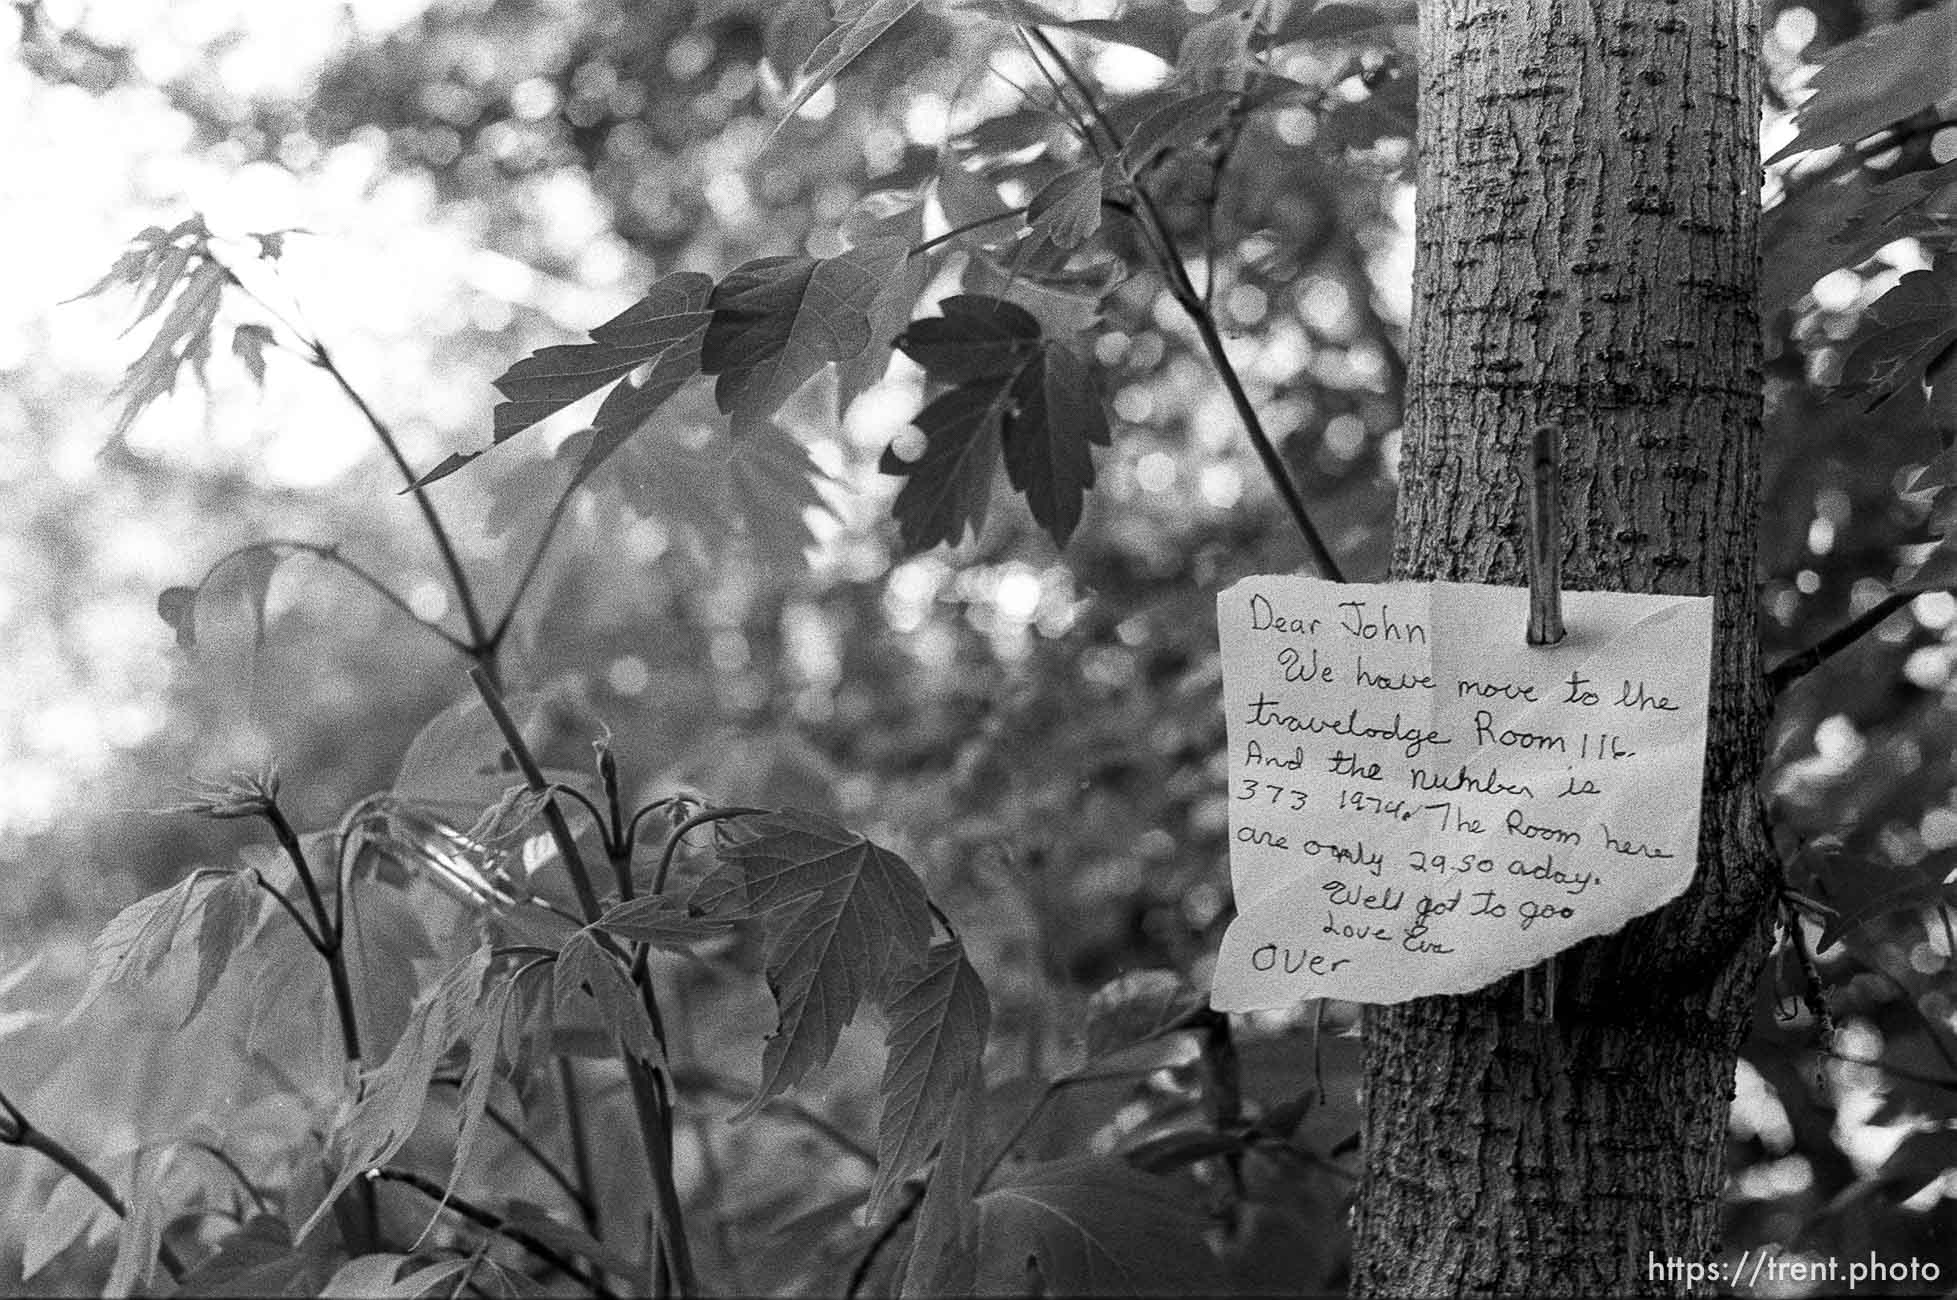 Dear John
We have move to the
travelodge Room 116.
And the number is
373 1974. The Room here
are only 29.50 a day.
Well got to goo
Love Eva
Over
https://trent.photo